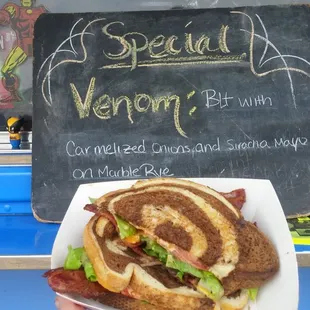 Special
Venom: Blt with
Carmelized Onions, and Siracha Mayo
on Marble Rye